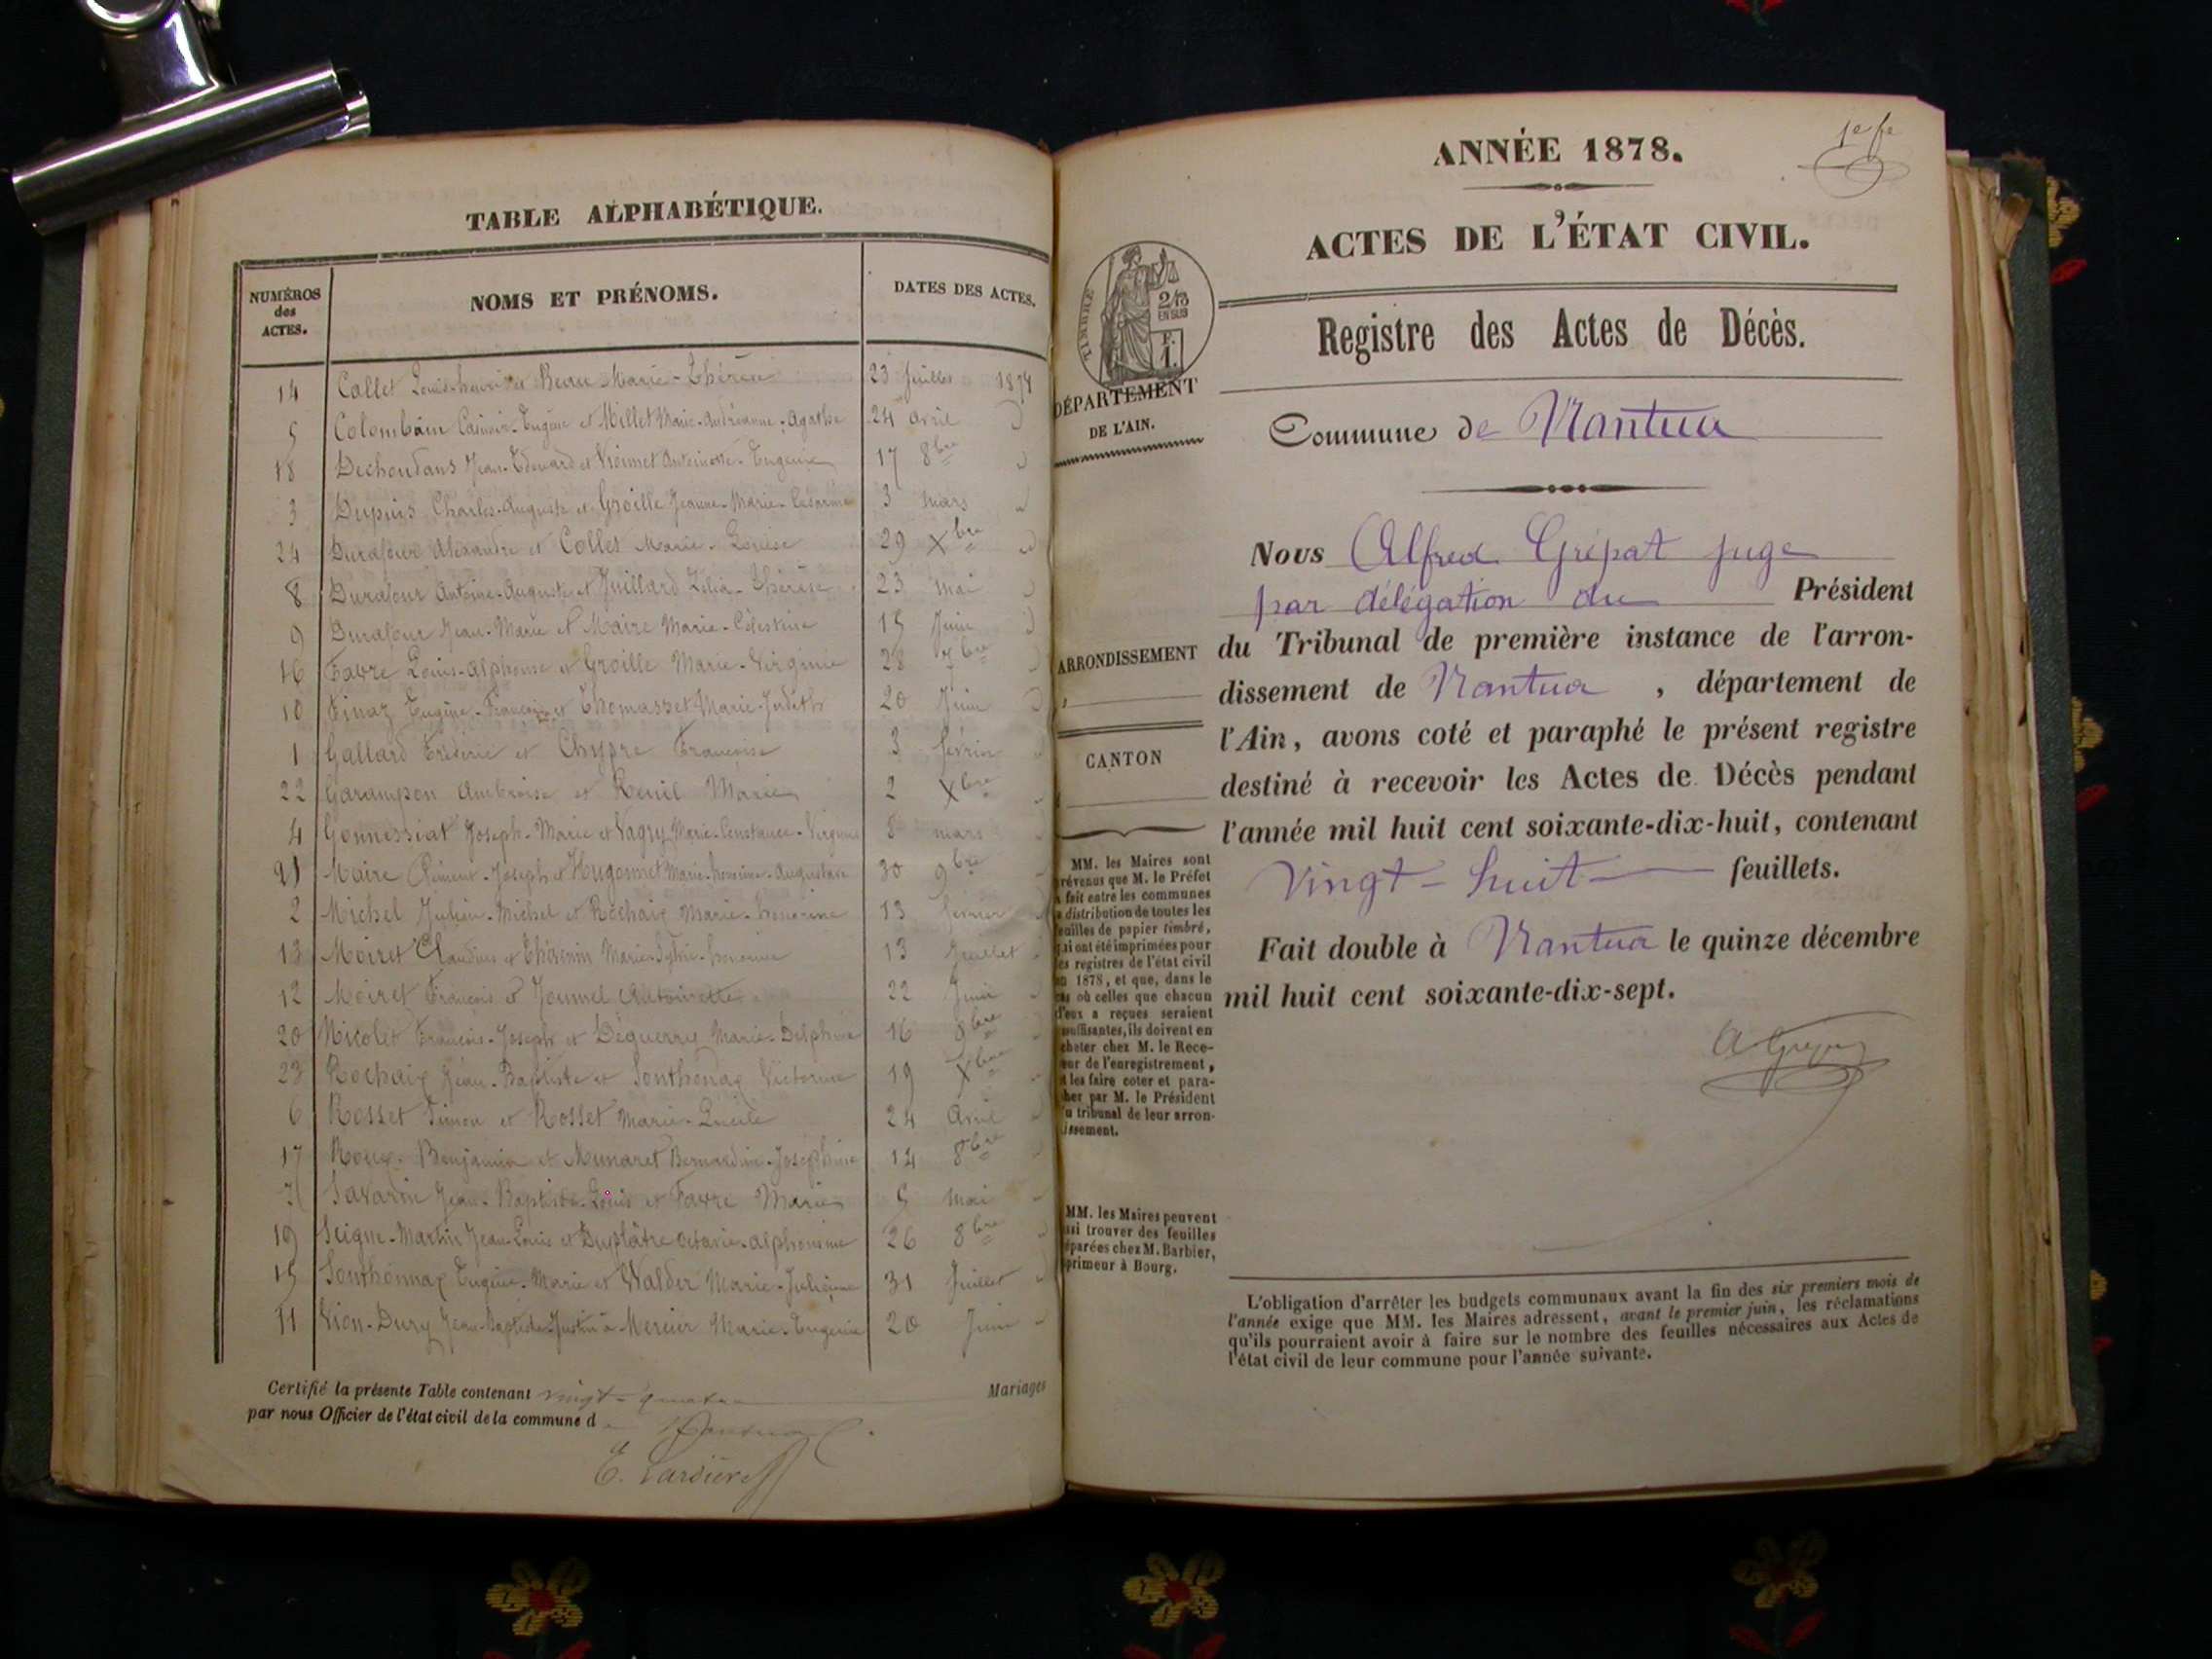 TABLE ALPHABÉTIQUE.
NUMÉROS des ACTES. NOMS ET PRÉNOMS. DATES DES ACTES.
14 Collet Louis-henri et Marie-Thérèse 23 Juillet 187
5 Colombain Casimir-Eugène et Millet Marie-Andréanne-Agathe 24 avril
18 Dechoudans Jean-Edouard et Vioimet Antoinette-Eugénie 17 8bre
3 Dupuis Charles-Auguste et Groille Jeanne-Marie-Césarine 3 mars
24 Durafour Alexandre et Collet Marie-Louise 29 Xbre
8 Durafour Antoine-Auguste et Juillard Zélia-Thérèse 23 mai
9 Durafour Jean-Marie et Maire Marie-Célestine 15 Juin
16 Favre Louis-Alphonse et Groille Marie-Virginie 28 7bre
10 Finaz Eugène-François et Thomasset Marie-Judith 20 Juin
1 Gallard Frédéric et Chypre Françoise 3 février
22 Garampon Ambroise et Marie 2 Xbre
4 Gonnessiat Joseph-Marie et Vagry Marie-Constance-Virginie 8 mars
21 Maire Clément-Joseph et Hugonnet Marie-honorine-Augustine 30 9bre
2 Michel Julien-Michel et Rochaix Marie-honorine 13 février
13 Moiret Claudius et Thévenin Marie-Sylvie-honorine 13 Juillet
12 Moiret François et Jounnel Antoinette 22 Juin
20 Nicolet François-Joseph et Déguerry Marie-Delphine 16 9bre
23 Rochaix Jean-Baptiste et Sonthonax Victorine 19 Xbre
6 Rosset Simon et Rosset Marie-Lucile 24 Avril
17 Roux Benjamin et Munaret Bernardine-Joséphine 14 8bre
7 Savarin Jean-Baptiste-Louis et Favre Marie 5 mai
19 Seigne-Martin Jean-Louis et Duplâtre Octavie-alphonsine 26 8bre
15 Sonthonnax Eugène-Marie et Walder Marie-Julienne 31 Juillet
11 Vion-Dury Jean-Baptiste-Justin à Mercier Marie-Eugénie 20 Juin
Certifié la présente Table contenant vingt-quatre Mariages
par nous Officier de l'état civil de la commune de Nantua
E. Lardière
1e fe
ANNÉE 1878.
ACTES DE L'ÉTAT CIVIL.
TIMBRE
2/10 EN SUS
F. 1.
DÉPARTEMENT
DE L'AIN.
Registre des Actes de Décès.
Commune de Nantua
Nous Alfred Grépat juge
par délégation du Président
du Tribunal de première instance de l'arron-
dissement de Nantua, département de
l'Ain, avons coté et paraphé le présent registre
destiné à recevoir les Actes de Décès pendant
l'année mil huit cent soixante-dix-huit, contenant
Vingt-huit feuillets.
Fait double à Nantua le quinze décembre
mil huit cent soixante-dix-sept.
A Grépat
ARRONDISSEMENT
CANTON
MM. les Maires sont
révenus que M. le Préfet
a fait entre les communes
a distribution de toutes les
euilles de papier timbré,
qui ont été imprimées pour
es registres de l'état civil
n 1878, et que, dans le
as où celles que chacun
d'eux a reçues seraient
suffisantes, ils doivent en
cheter chez M. le Rece-
eur de l'enregistrement,
t les faire coter et para-
pher par M. le Président
u tribunal de leur arron-
issement.
MM. les Maires peuvent
ssi trouver des feuilles
éparées chez M. Barbier,
primeur à Bourg.
L'obligation d'arrêter les budgets communaux avant la fin des six premiers mois de
l'année exige que MM. les Maires adressent, avant le premier juin, les réclamations
qu'ils pourraient avoir à faire sur le nombre des feuilles nécessaires aux Actes de
l'état civil de leur commune pour l'année suivante.